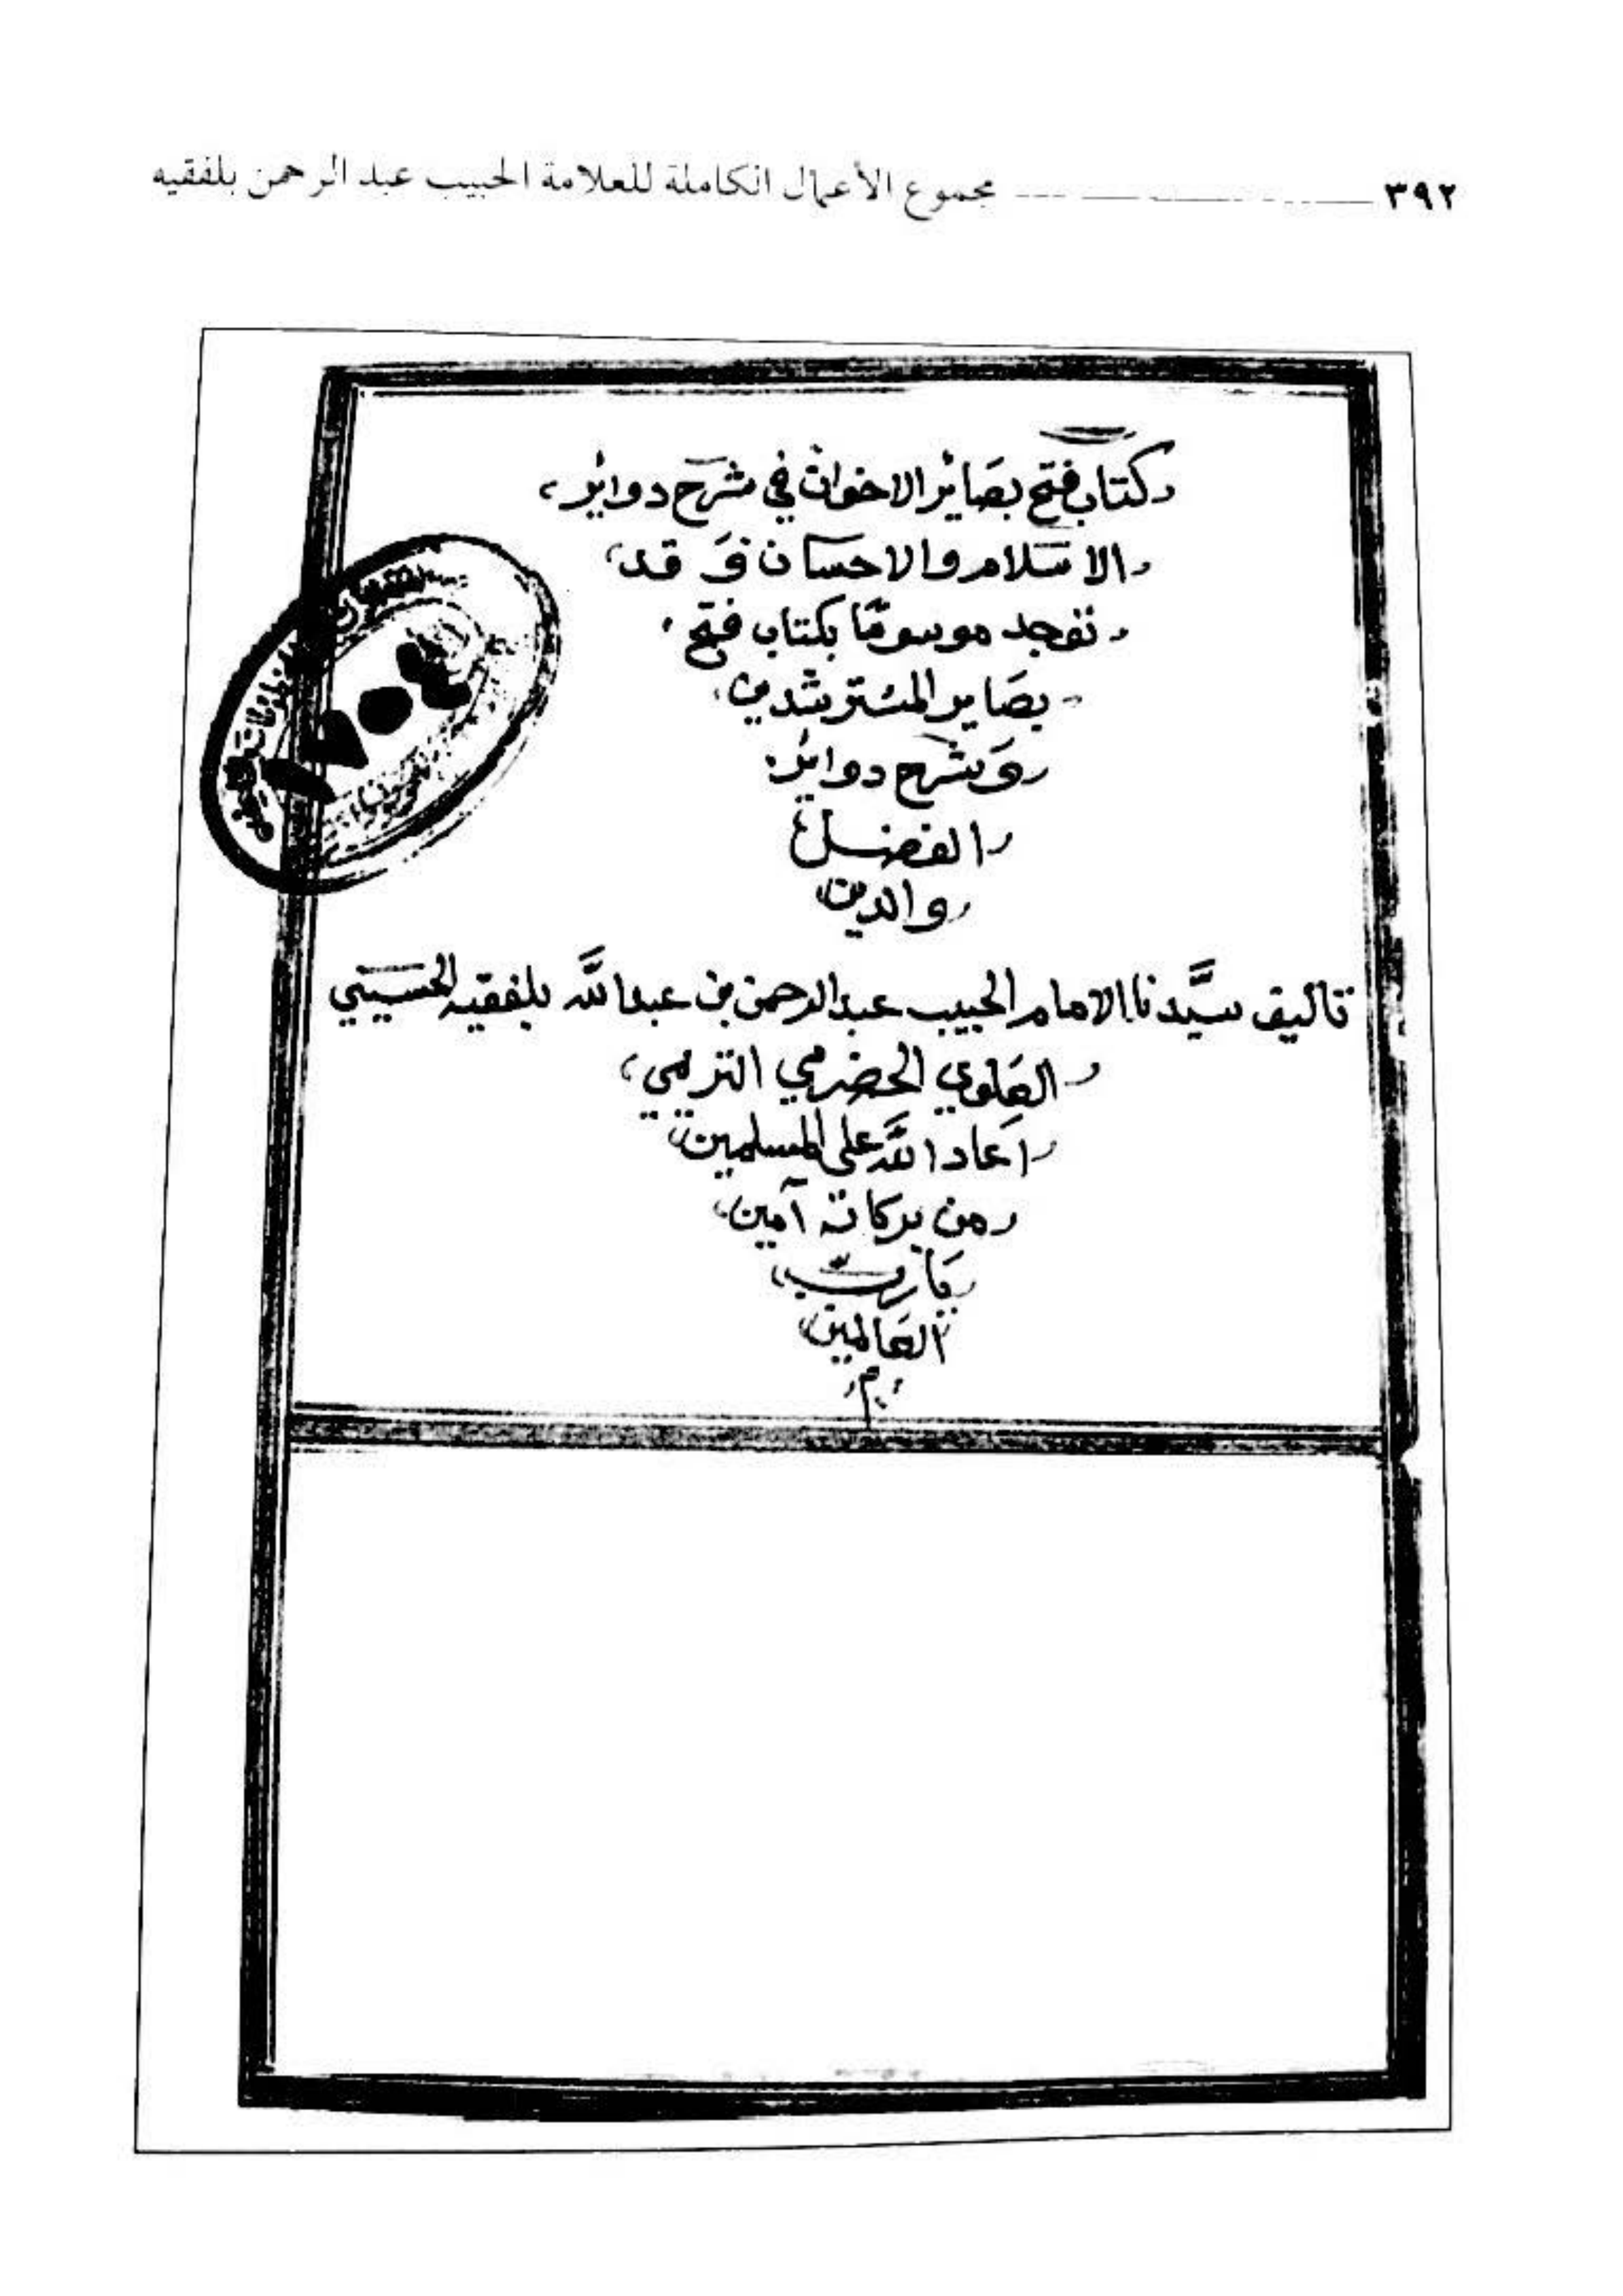 ٣٩٢ مجموع الأعمال الكاملة للعلامة الحبيب عبد الرحمن بلفقيه
كتاب فتح بصائر الاخوان في شرح دوائر
الاسلام والاحسان وقد
توجد موسومًا بكتاب فتح
بصاير المسترشدين
وشرح دوائر
الفضل
والدين
تأليف سيّدنا الامام الحبيب عبدالرحمن بن عبدالله بلفقيه الحسيني
العلوي الحضرمي التريمي
اعاد الله على المسلمين
من بركاته آمين
يارب
العالمين
م